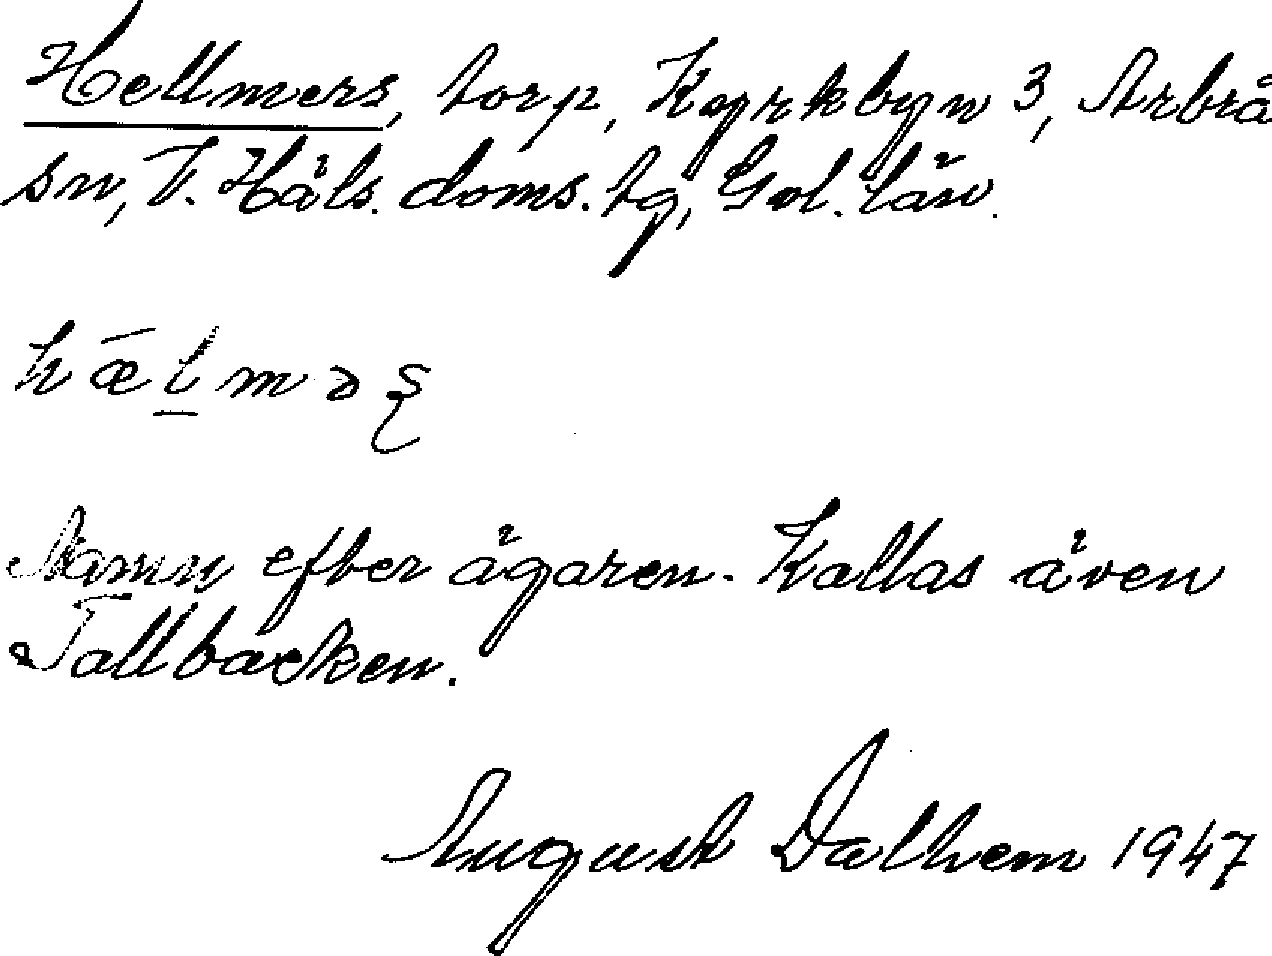 Hellmers, torp, Kyrkbyn 3, Arbrå
sn, V. Häls. doms. tg, Gvl. län.
h ǣ l̠ m ə ʂ
Namn efter ägaren. Kallas även
Tallbacken.
August Dalhem 1947